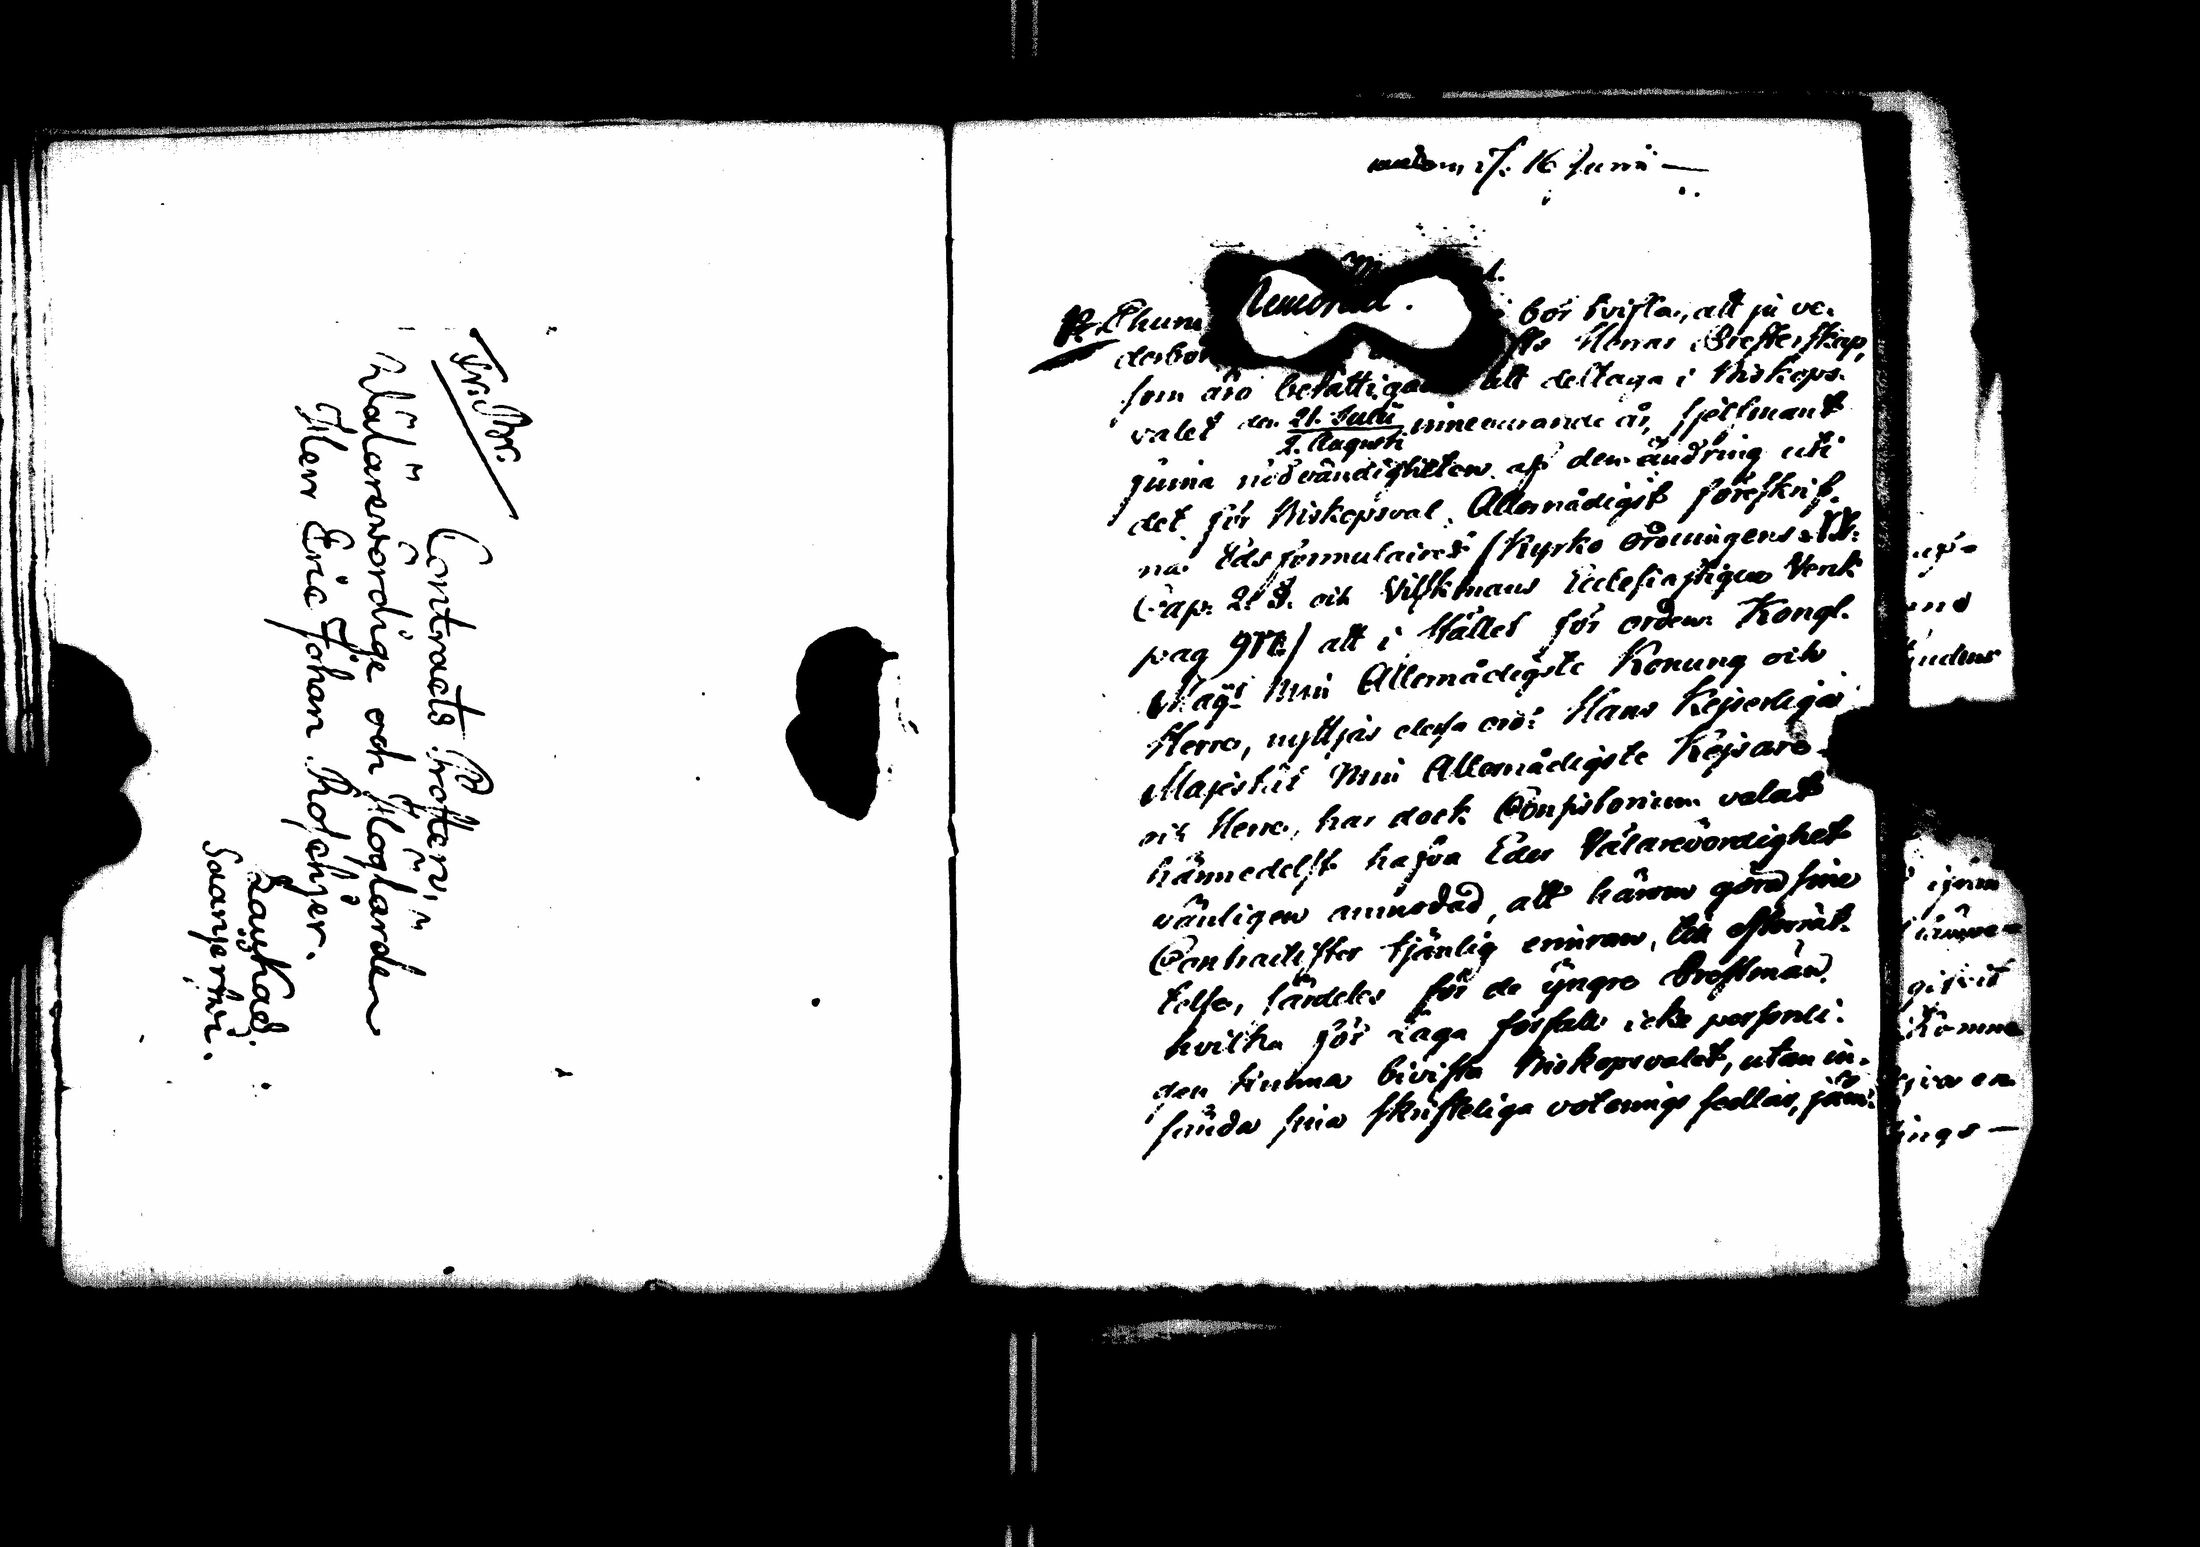 Fr. Br.
Contracts Prosten,
Wälärewördige och Höglärde
Herr Eric Johan Frosterus.
Laukas.
Saarijerfwi.
16 Junii —
Memorial.
bör tvifla, att ju ve-
derbör Herrar Presterskap,
som äro berättigade att deltaga i Biskops-
valet den 21. Julii / 2. Augusti innevarande år, sjelfmant
finna nödvändigheten af den ändring uti
det för Biskopsval, Allernådigst föreskrif-
na Eds formulairet /Kyrko Ordningens
Cap. 2. §. och Wilskmans Ecclesiastique Verk
pag / att i stället för orden: Kongl.
Maj:t Min Allernådigste Konung och
Herre, nyttjas dessa ord: Hans Kejserliga
Majestät Min Allernådigste Kejsare
och Herre, har dock Consistorium velat
härmedelst hafva Eder Välärevördighet
vänligen anmodad, att härom göra sine
Contractister tjänlig erinran, till efterrät-
telse, särdeles för de yngre Prestmän,
hvilka för laga förfall icke personli-
gen hinna bivista Biskopsvalet, utan in-
sända sina skrifteliga voterings sedlar, jäm-